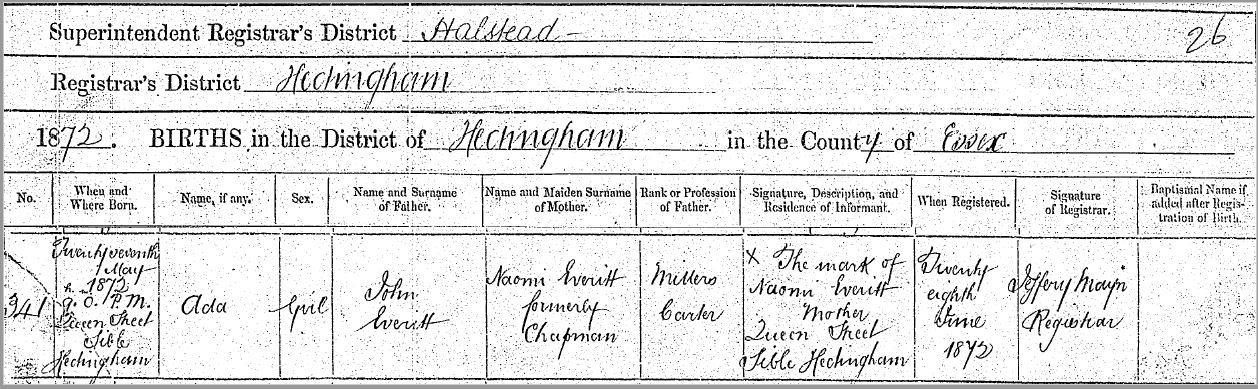 Superintendent Registrar's District Halstead -
26
Registrar's District Hedingham
1872. BIRTHS in the District of Hedingham in the County of Essex
No. When and Where Born. Name, if any. Sex. Name and Surname of Father. Name and Maiden Surname of Mother. Rank or Profession of Father. Signature, Description, and Residence of Informant. When Registered. Signature of Registrar. Baptismal Name if added after Registration of Birth.
341
Twenty seventh
May
1872
h. m.
9. 0. P.M.
Queen Street
Sible
Hedingham
Ada
Girl
John
Everitt
Naomi Everitt
formerly
Chapman
Millers
Carter
X The mark of
Naomi Everitt
Mother
Queen Street
Sible Hedingham
Twenty
eighth
June
1872
Jeffery
Registrar